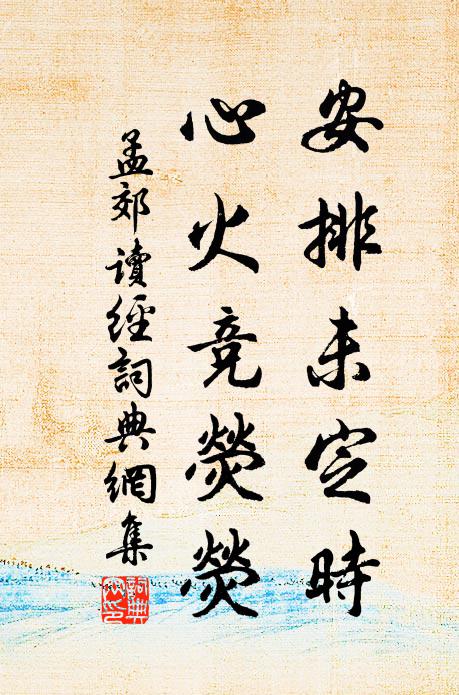 安排未定時
心火竞熒熒
孟郊讀經詞典網集